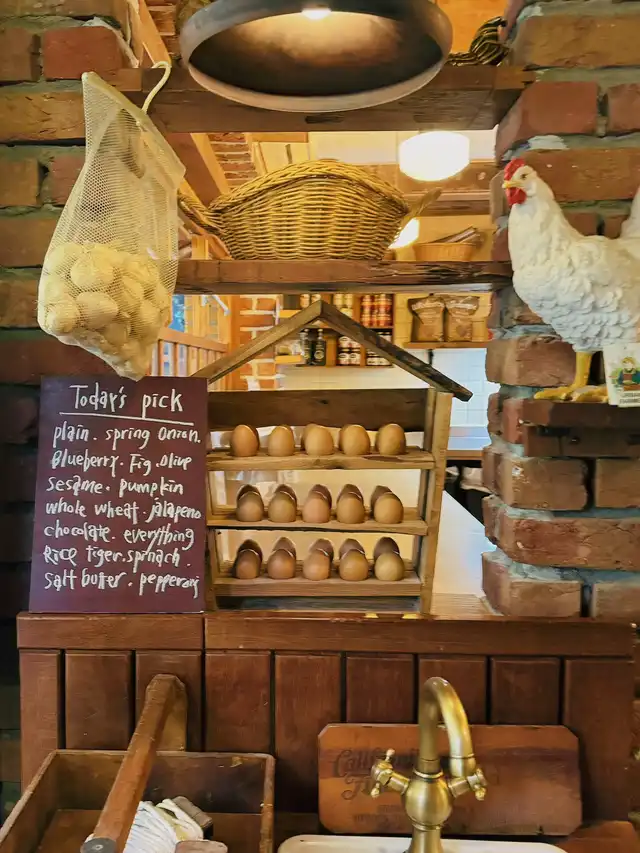 Today's pick
plain. spring onion.
Blueberry. Fig. olive
sesame. pumpkin
whole wheat. jalapeno
chocolate. everything
Rice tiger. spinach.
salt butter. pepperoni